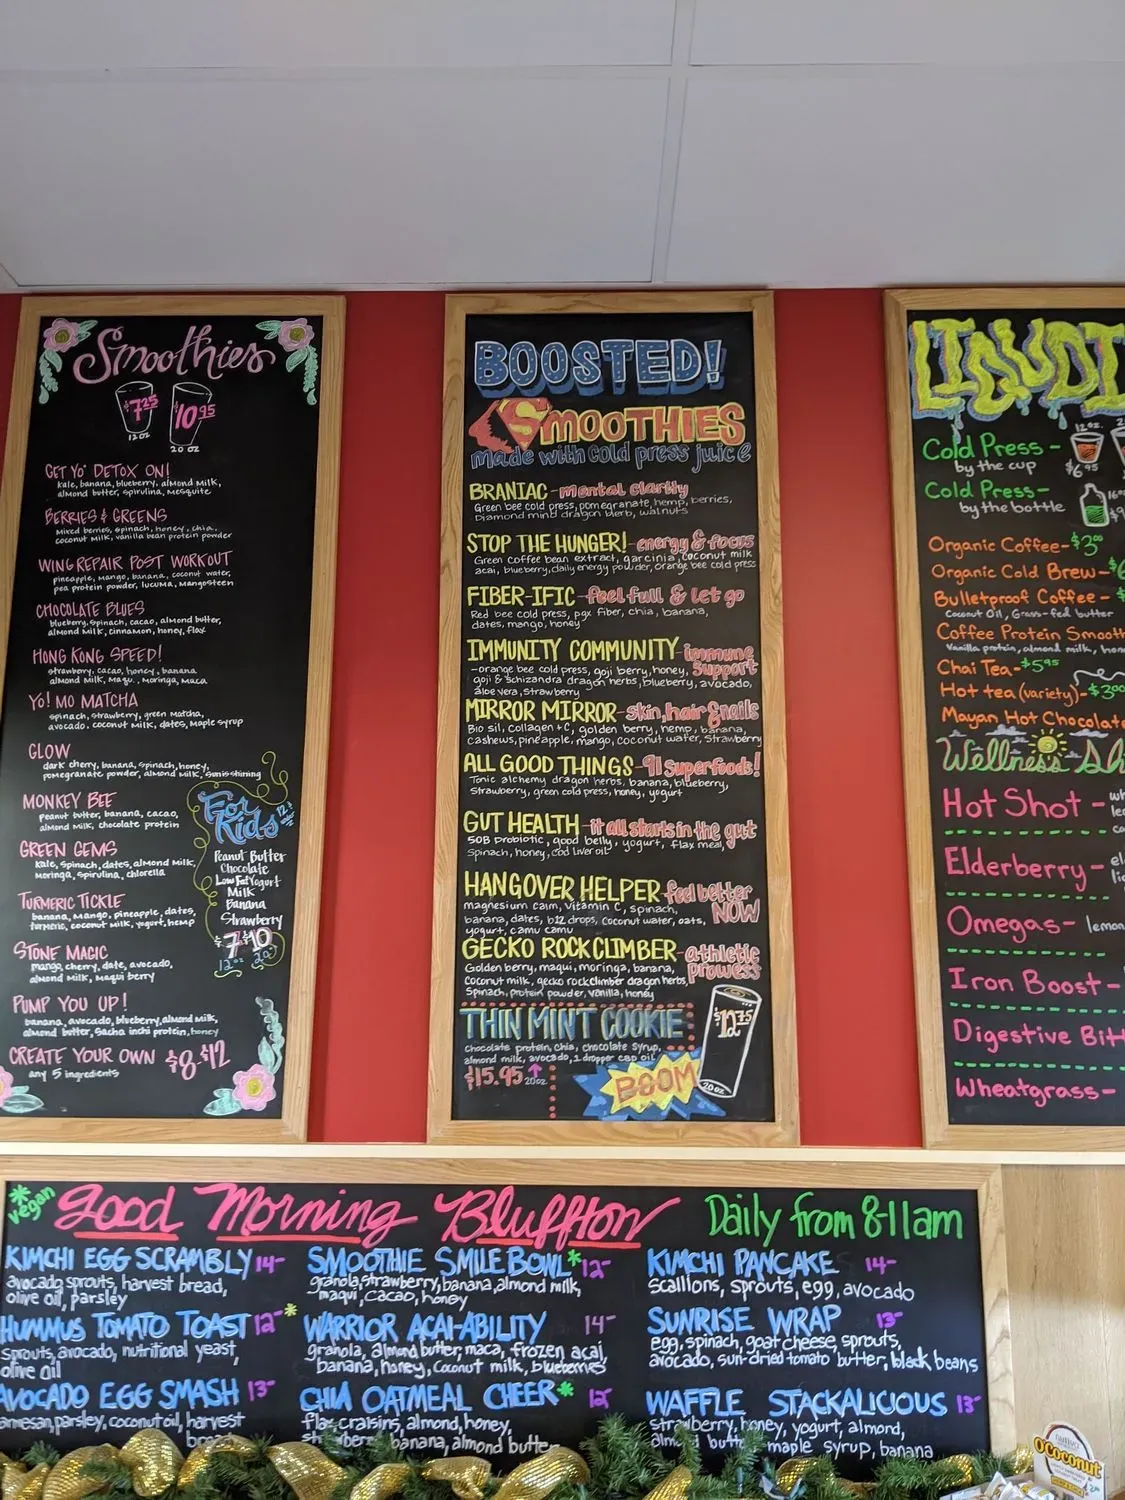 Smoothies
$7.25
$10.95
12 oz
20 oz
GET YO' DETOX ON!
kale, banana, blueberry, almond milk,
almond butter, spirulina, mesquite
BERRIES & GREENS
Mixed berries, spinach, honey, chia,
coconut milk, vanilla bean protein powder
WING REPAIR POST WORKOUT
pineapple, mango, banana, coconut water,
pea protein powder, lucuma, mangosteen
CHOCOLATE BLUES
blueberry, spinach, cacao, almond butter,
almond milk, cinnamon, honey, flax
HONG KONG SPEED!
strawberry, cacao, honey, banana
almond milk, maqui, moringa, maca
YO! MO MATCHA
spinach, strawberry, green matcha,
avocado, coconut milk, dates, maple syrup
GLOW
dark cherry, banana, spinach, honey,
pomegranate powder, almond milk,
MONKEY BEE
peanut butter, banana, cacao,
almond milk, chocolate protein
GREEN GEMS
kale, spinach, dates, almond milk,
moringa, spirulina, chlorella
TURMERIC TICKLE
banana, mango, pineapple, dates,
turmeric, coconut milk, yogurt, hemp
STONE MAGIC
mango, cherry, date, avocado,
almond milk, maqui berry
PUMP YOU UP!
banana, avocado, blueberry, almond milk,
almond butter, sacha inchi protein, honey
CREATE YOUR OWN $8-$12
any 5 ingredients
For
Kids
Peanut Butter
Chocolate
Low Fat Yogurt
Milk
Banana
Strawberry
$7 $10
12oz 20oz
BOOSTED!
SMOOTHIES
made with cold press juice
BRANIAC - mental clarity
Green bee cold press, pomegranate, hemp, berries,
Diamond mind dragon herb, walnuts
STOP THE HUNGER! - energy & focus
Green coffee bean extract, garcinia, coconut milk
acai, blueberry, daily energy powder, orange bee cold press
FIBER-IFIC - feel full & let go
Red bee cold press, pgx fiber, chia, banana,
dates, mango, honey
IMMUNITY COMMUNITY - immune
support
- orange bee cold press, goji berry, honey,
goji & schizandra dragon herbs, blueberry, avocado,
aloe vera, strawberry
MIRROR MIRROR - skin, hair & nails
Bio sil, collagen + C, golden berry, hemp, banana,
cashews, pineapple, mango, coconut water, strawberry
ALL GOOD THINGS - 91 superfoods!
Tonic alchemy dragon herbs, banana, blueberry,
strawberry, green cold press, honey, yogurt
GUT HEALTH - it all starts in the gut
50B probiotic, good belly, yogurt, flax meal,
spinach, honey, cod liver oil
HANGOVER HELPER - feel better
NOW
magnesium calm, vitamin C, spinach,
banana, dates, b12 drops, coconut water, oats,
yogurt, camu camu
GECKO ROCK CLIMBER - athletic
prowess
Golden berry, maqui, moringa, banana,
coconut milk, gecko rock climber dragon herbs,
spinach, protein powder, vanilla, honey
THIN MINT COOKIE
chocolate protein, chia, chocolate syrup,
almond milk, avocado, 1 dropper CBD oil
$15.95 20oz
BOOM
$12.75
20oz
LIQUI
Cold Press -
by the cup
12 oz.
$6.95
Cold Press -
by the bottle
Organic Coffee - $3.00
Organic Cold Brew -
Bulletproof Coffee -
Coconut Oil, Grass-fed butter
Coffee Protein Smoot
Vanilla protein, almond milk,
Chai Tea - $5.95
Hot tea (variety) - $3.00
Mayan Hot Chocolate
Wellness Sh
Hot Shot -
Elderberry -
Omegas - lemon
Iron Boost -
Digestive Bitt
Wheatgrass -
* vegan
Good Morning Bluffton
Daily from 8-11am
KIMCHI EGG SCRAMBLY 14-
avocado, sprouts, harvest bread,
olive oil, parsley
HUMMUS TOMATO TOAST 12- *
sprouts, avocado, nutritional yeast,
olive oil
AVOCADO EGG SMASH 13-
parsley, coconut oil, harvest
SMOOTHIE SMILE BOWL * 12-
granola, strawberry, banana, almond milk,
maqui, cacao, honey
WARRIOR ACAI-ABILITY 14-
granola, almond butter, maca, frozen acai,
banana, honey, coconut milk, blueberries
CHIA OATMEAL CHEER * 12
flax, craisins, almond, honey,
banana, almond butter
KIMCHI PANCAKE 14-
scallions, sprouts, egg, avocado
SUNRISE WRAP 13-
egg, spinach, goat cheese, sprouts,
avocado, sun-dried tomato butter, black beans
WAFFLE STACKALICIOUS 13-
strawberry, honey, yogurt, almond,
maple syrup, banana
OCoconut